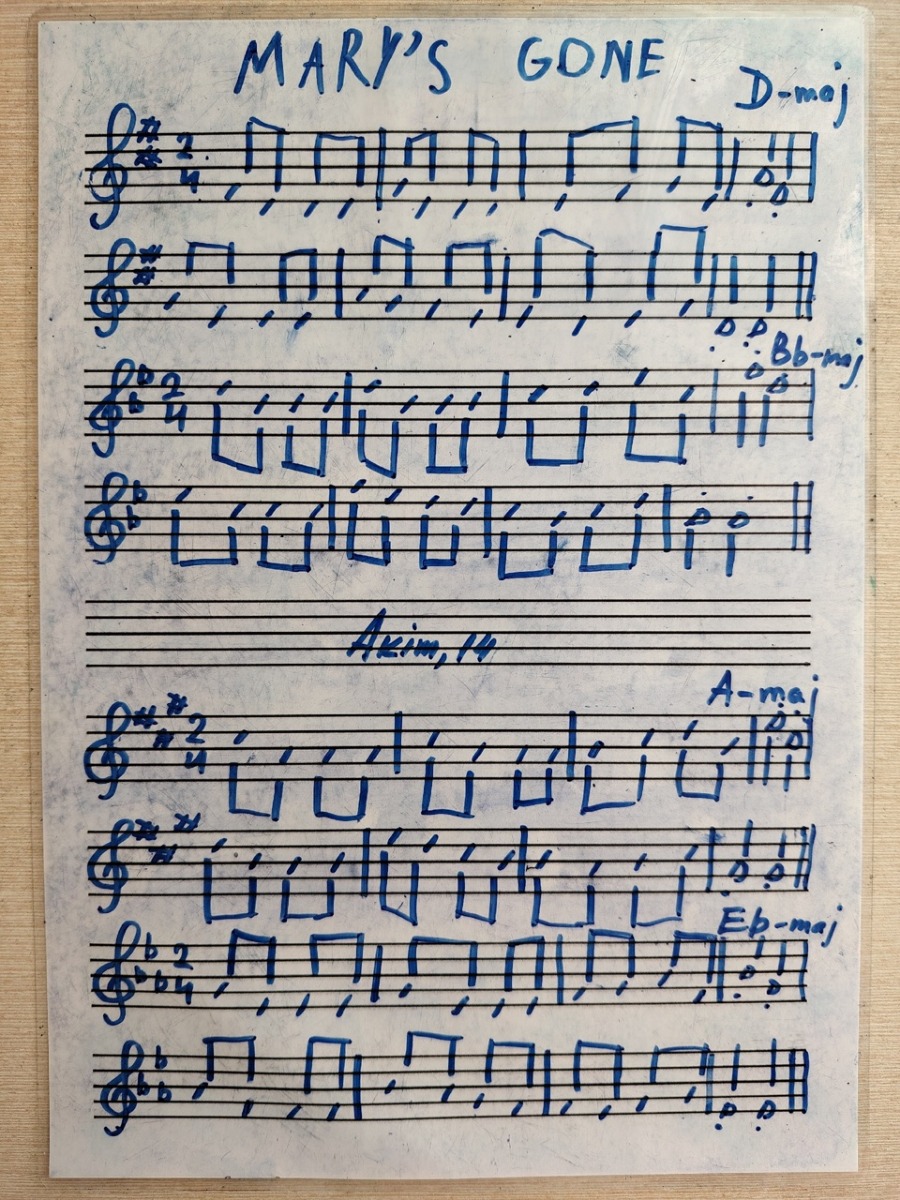 MARY'S GONE
D-maj
2
4
Bb-maj
2
4
Akim, 14
A-maj
2
4
Eb-maj
2
4